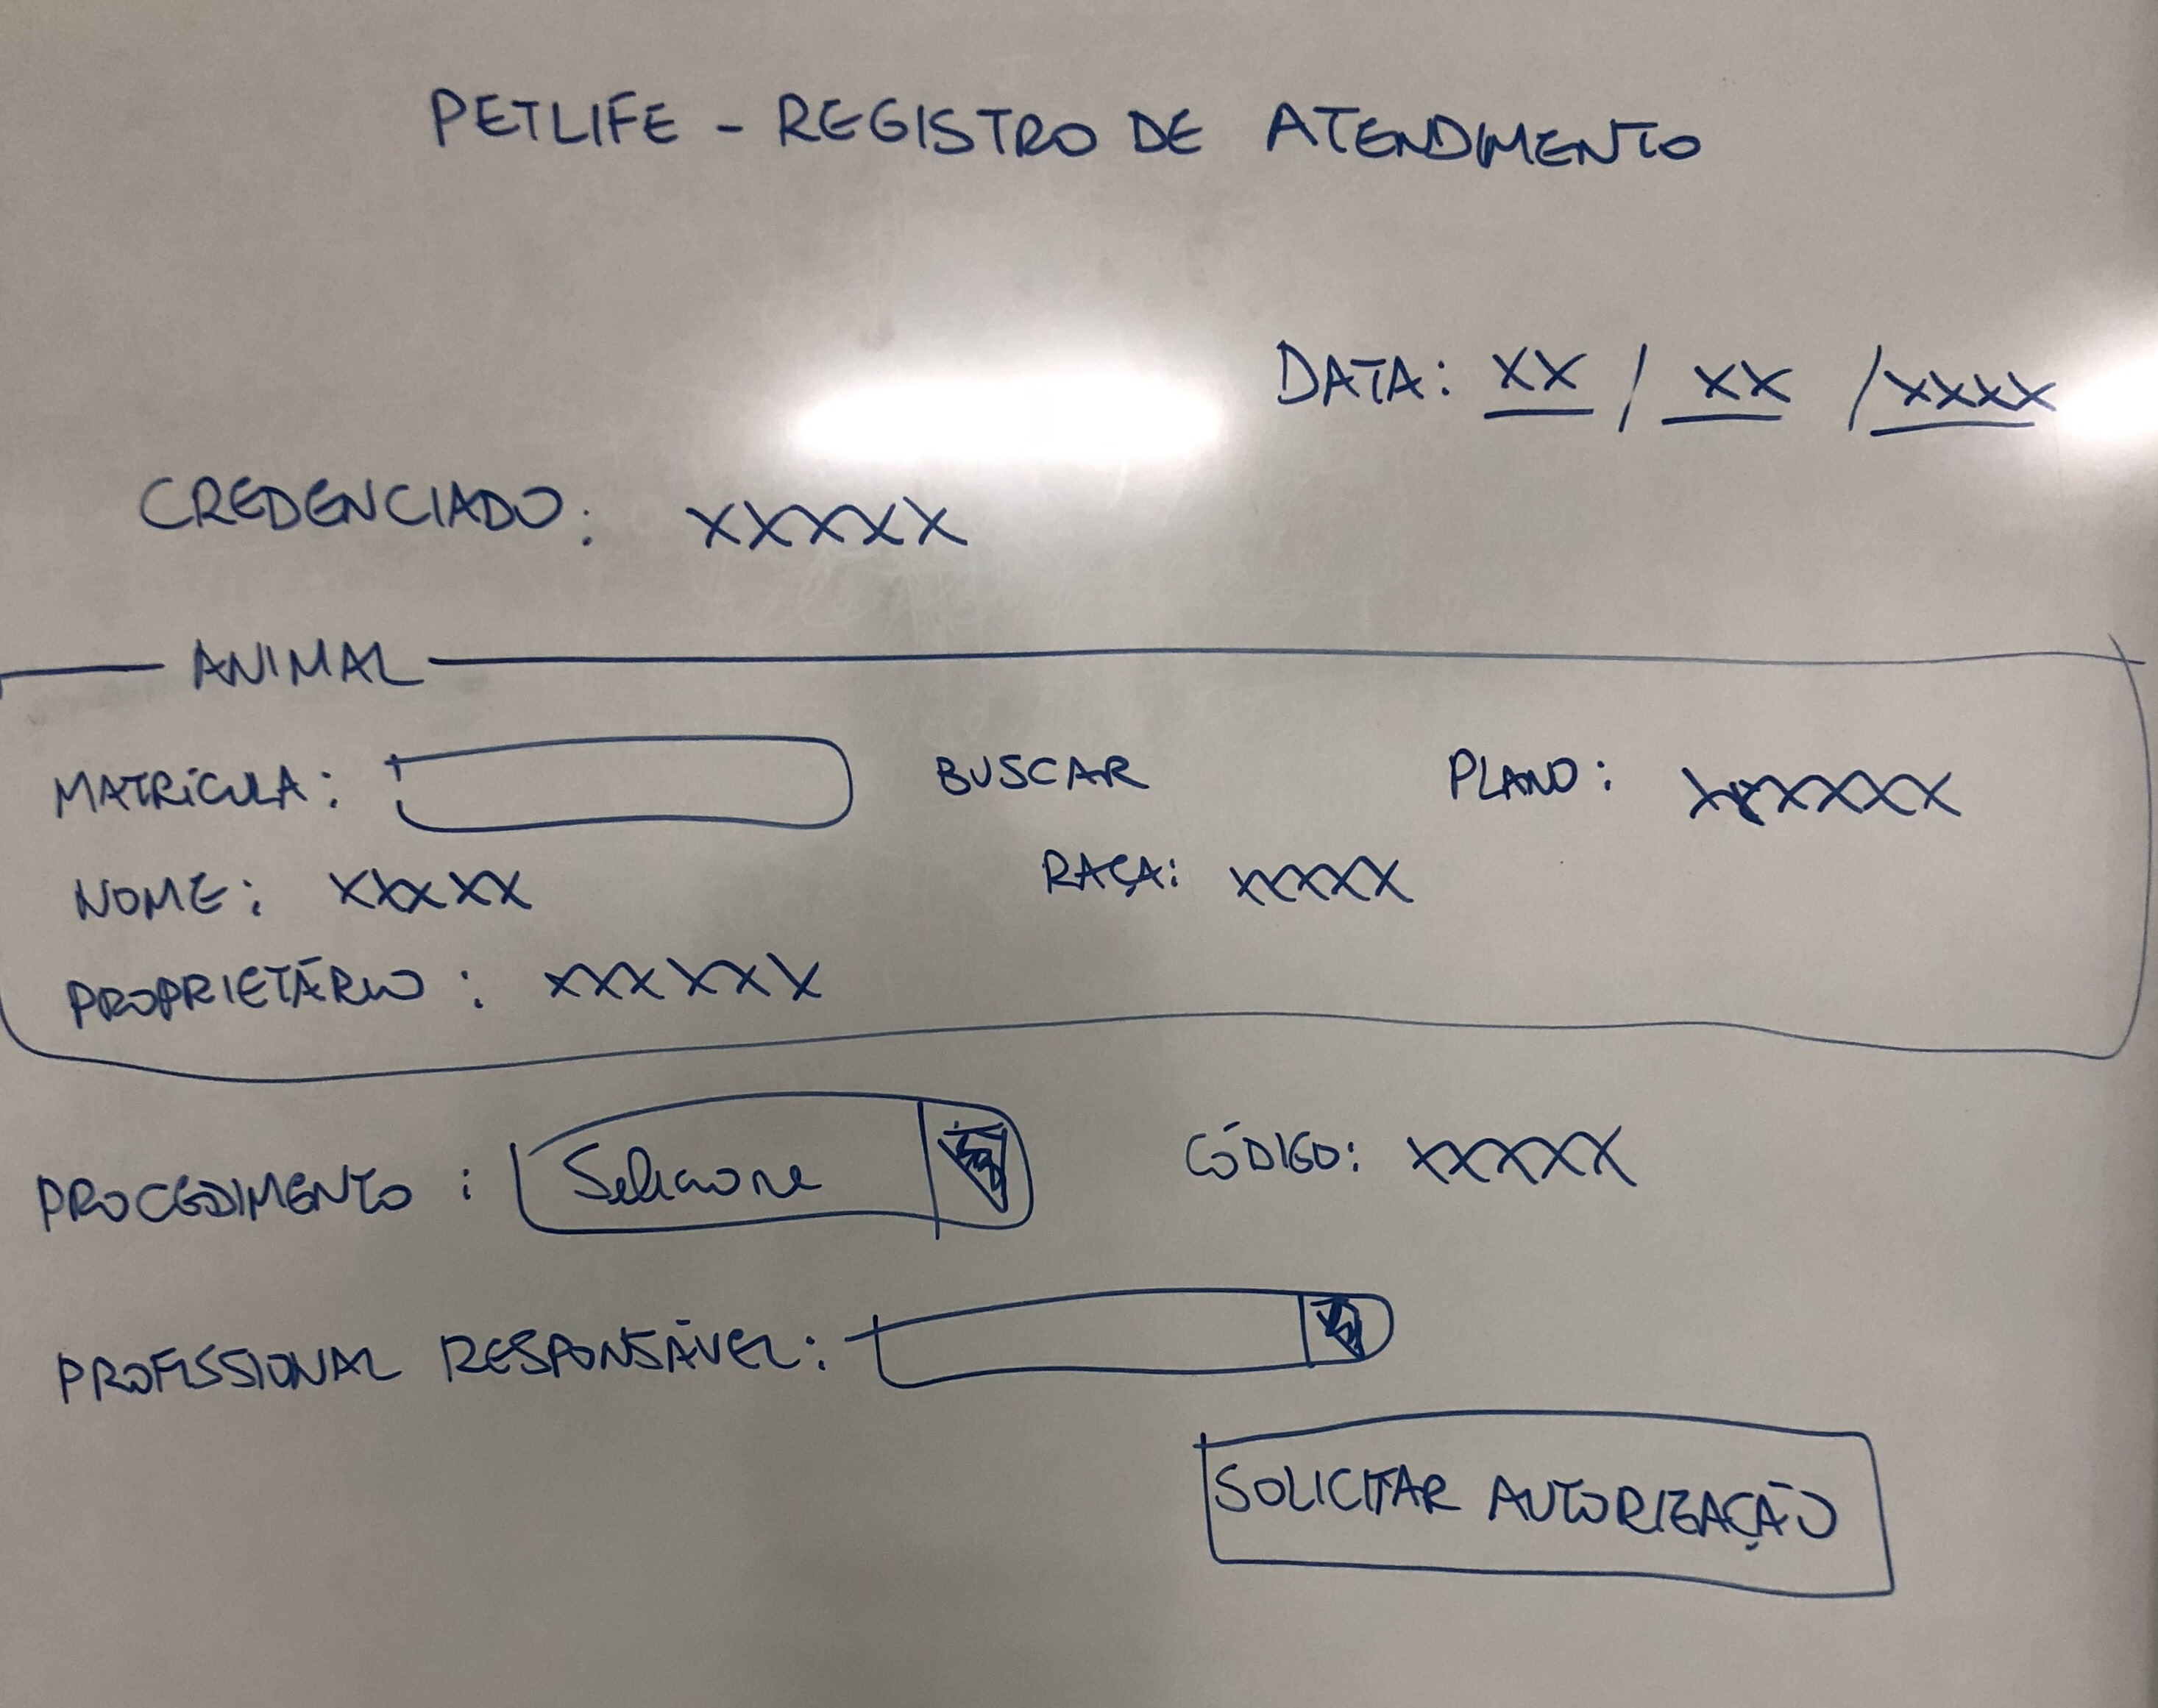 PETLIFE - REGISTRO DE ATENDIMENTO
DATA: XX / XX / XXXX
CREDENCIADO: XXXXX
ANIMAL
MATRÍCULA: BUSCAR PLANO: XXXXXX
NOME: XXXXX RAÇA: XXXXX
PROPRIETÁRIO: XXXXXX
PROCEDIMENTO: Selecione CÓDIGO: XXXXX
PROFISSIONAL RESPONSÁVEL:
SOLICITAR AUTORIZAÇÃO